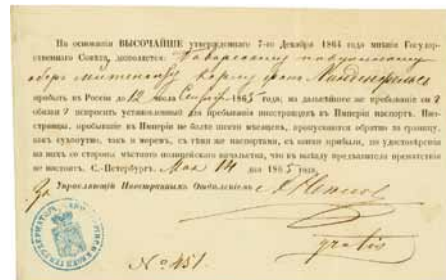 На основанiи ВЫСОЧАЙШЕ утвержденнаго 7-го Декабря 1864 года мнѣнiя Государ-
ственнаго Совѣта, дозволяется: Баварскому
оберъ Карлу фонъ
пробыть въ Россiи до 12 числа 1865 года, на дальнѣйшее же пребыванiе онъ
обязанъ испросить установленный для пребыванiя иностранцевъ въ Имперiи паспортъ. Ино-
странцы, пробывшiе въ Имперiи не болѣе шести мѣсяцевъ, пропускаются обратно за границу,
какъ сухопутно, такъ и моремъ, съ тѣми же паспортами, съ коими прибыли, по удостовѣренiи
на нихъ со стороны мѣстнаго полицейскаго начальства, что къ выѣзду предъявителя препятствiя
не настоитъ. С.-Петербургъ. Мая 14 дня 1865 года.
За Управляющiй Иностраннымъ Отдѣленiемъ
gratis
№ 451.